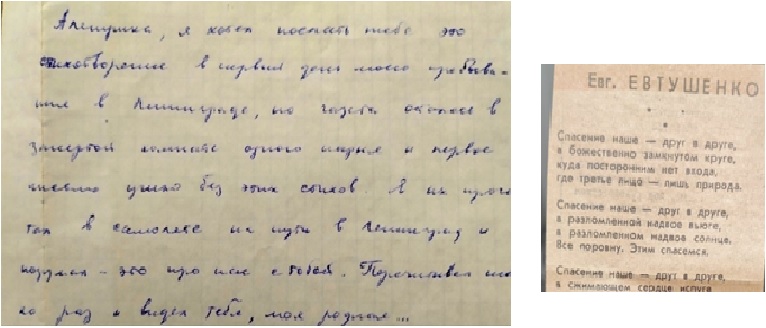 Аленушка, я хотел послать тебе это
стихотворение в первый день моего пребыва-
ния в Ленинграде, но газета оказалась в
запертой комнате одного парня и первое
письмо ушло без этих стихов. Я их прочи
тал в самолете на пути в Ленинград и
подумал - это про нас с тобой. Перечитывал
раз и видел тебя, моя родная...
Евг. ЕВТУШЕНКО
Спасение наше — друг в друге,
в божественно замкнутом круге,
куда посторонним нет входа,
где третье лицо — лишь природа.
Спасение наше — друг в друге,
в разломленной надвое вьюге,
в разломленном надвое солнце.
Все поровну. Этим спасемся.
Спасение наше — друг в друге,
в сжимающем сердце испуге